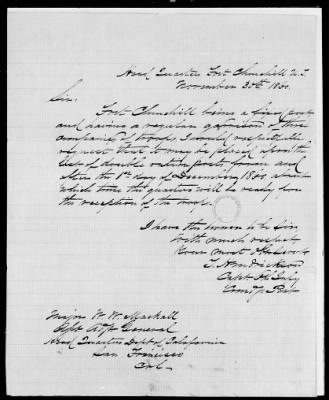 Head Quarters Fort Churchill U.T.
November 30th 1860.
Sir:
Fort Churchill being a fixed post
and having a regular garrison of three
companies of troops I would respectfully
request that it may be placed upon the
list of double ration posts from and
after the 1st day of December 1860 about
which time the quarters will be ready for
the reception of the troops.
I have the honor to be Sir
With much respect
Your most Obt Servt
Capt
Comg Post
Major W. W. Mackall
Asst Adjt General
Head Quarters Dept of California
San Francisco
Cal.